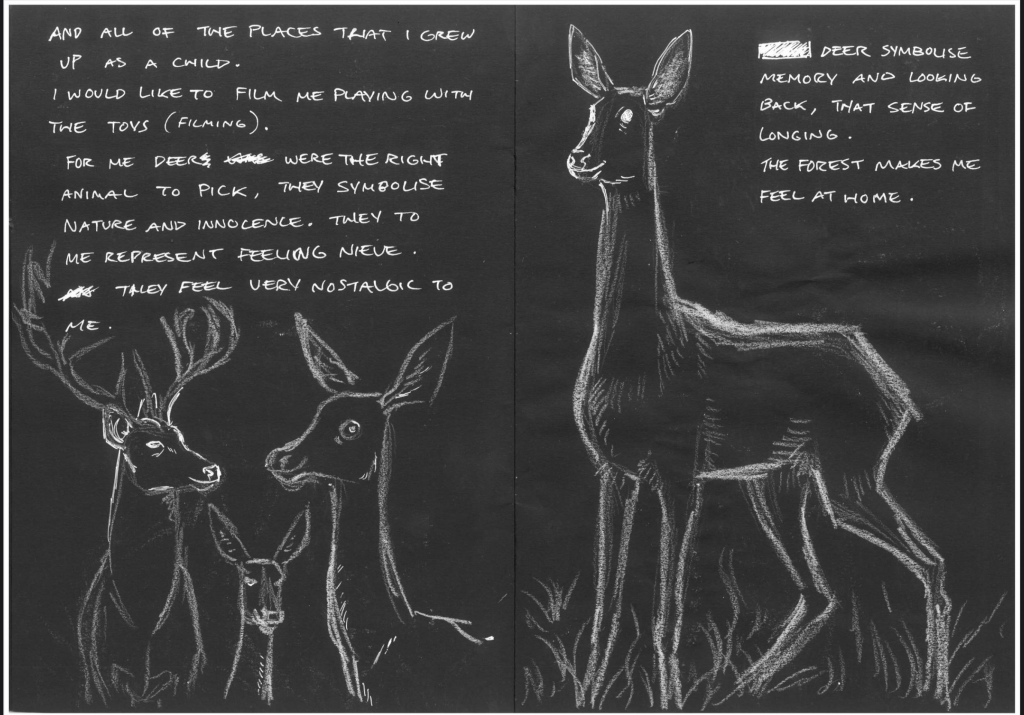 AND ALL OF THE PLACES THAT I GREW
UP AS A CHILD.
I WOULD LIKE TO FILM ME PLAYING WITH
THE TOYS (FILMING).
FOR ME DEERS WERE THE RIGHT
ANIMAL TO PICK, THEY SYMBOLISE
NATURE AND INNOCENCE. THEY TO
ME REPRESENT FEELING NIEVE.
THEY FEEL VERY NOSTALGIC TO
ME.
DEER SYMBOLISE
MEMORY AND LOOKING
BACK, THAT SENSE OF
LONGING.
THE FOREST MAKES ME
FEEL AT HOME.